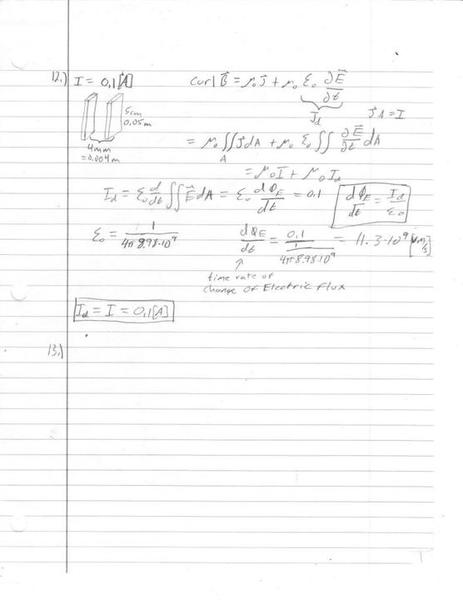 12.) I = 0,1[A]   curl B⃗ = μ₀ J⃗ + μ₀ ε₀ ∂E⃗/∂t
J⃗d   JA = I
5cm
0.05m
4mm
= 0.004m
= μ₀ ∬_A J dA + μ₀ ε₀ ∬ ∂E⃗/∂t dA
= μ₀ I + μ₀ Id
Id = ε₀ d/dt ∬ E⃗ dA = ε₀ dΦE/dt = 0.1   dΦE/dt = Id/ε₀
ε₀ = 1/(4π 8.98·10⁹)   dΦE/dt = 0.1/(1/(4π 8.98·10⁹)) = 11.3·10⁹ [V·m/s]
↑
time rate of
change of Electric flux
Id = I = 0,1[A]
13.)